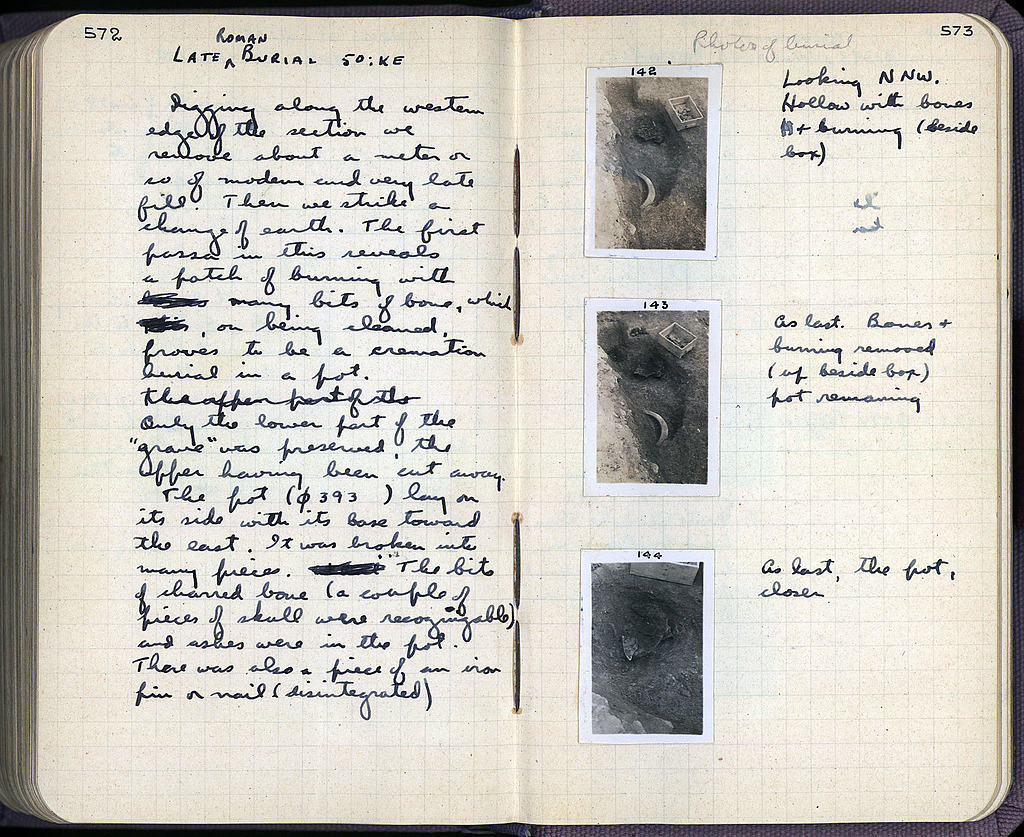 572
ROMAN
LATE ^ BURIAL 50:KE
Digging along the western
edge of the section we
remove about a meter or
so of modern and very late
fill. Then we strike a
change of earth. The first
passa in this reveals
a patch of burning with
many bits of bone, which
, on being cleaned,
proves to be a cremation
burial in a pot.
The upper part of the
Only the lower part of the
"grave" was preserved, the
upper having been cut away.
The pot (φ 393 ) lay on
its side with its base toward
the east. It was broken into
many pieces. The bits
of charred bone (a couple of
pieces of skull were recognizable)
and ashes were in the pot.
There was also a piece of an iron
pin or nail (disintegrated)
573
Photos of burial
142
Looking NNW.
Hollow with bones
+ burning (beside
box)
143
As last. Bones +
burning removed
(up beside box)
pot remaining
144
As last, the pot,
closer